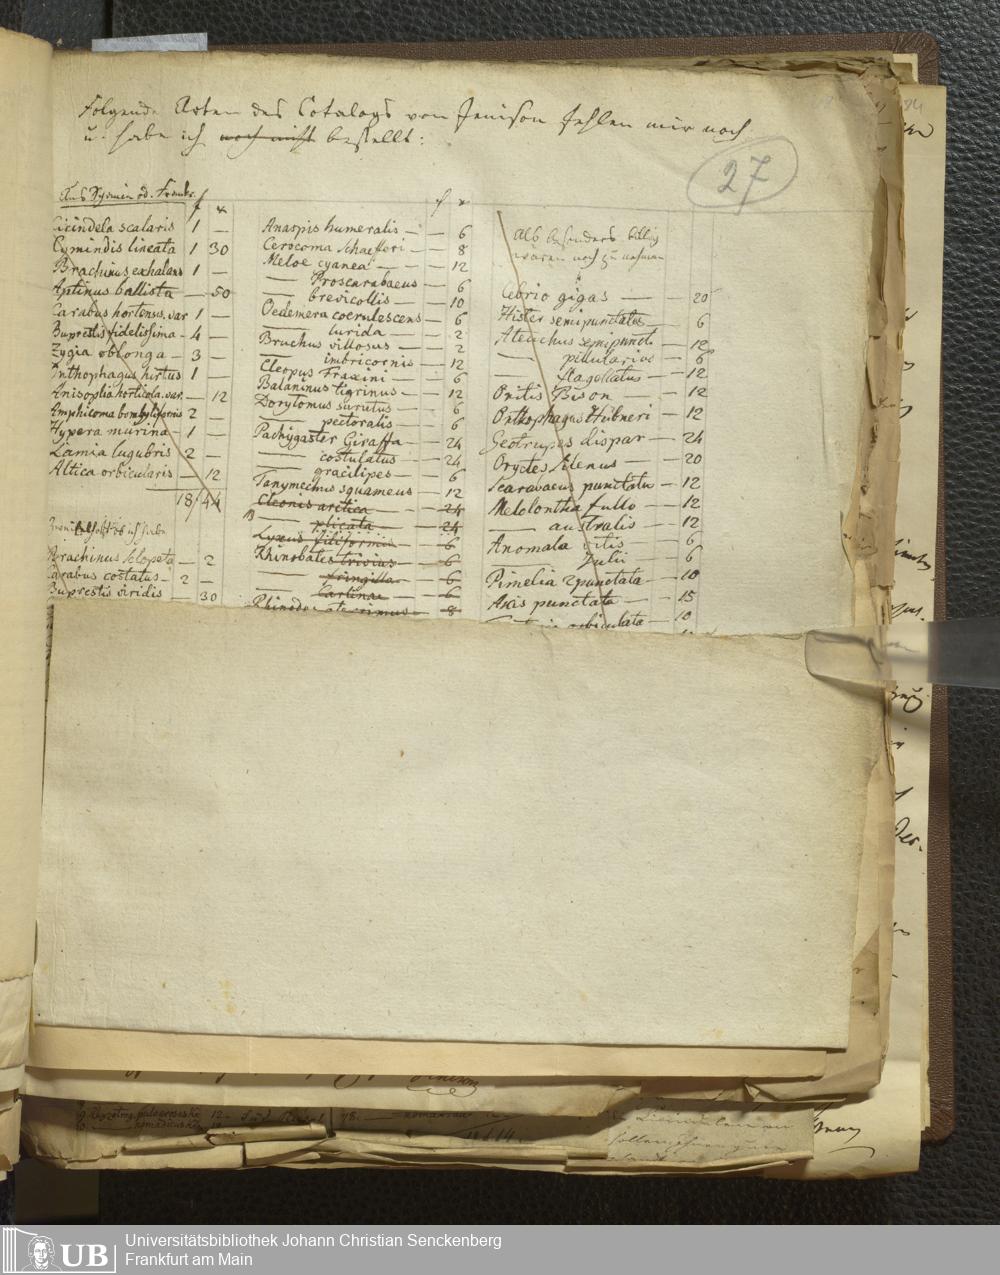 Folgende Arten des Catalogs von Jenison fehlen mir noch
u. habe ich noch nicht bestellt:
27
Aus Spanien od. Frankr. f x
Cicindela scalaris 1 —
Cymindis lineata 1 30
Brachinus exhalans 1 —
Aptinus ballista — 50
Carabus hortensis. var 1 —
Buprestis fidelissima - 4 —
Zygia oblonga — 3 —
Onthophagus hirtus 1 —
Anisoplia horticola. var. — 12
Amphicoma bombyliformis 2 —
Hypera murina - 1 —
Lamia lugubris 2 —
Altica orbicularis — 12
18/44
ob ich habe
Brachinus sclopeta — 2
Carabus costatus - 2 —
Buprestis viridis — 30
f x
Anaspis humeralis — — 6
Cerocoma Schaefferi — — 8
Meloe cyanea — — — 12
—— Proscarabaeus — 6
—— brevicollis — — 10
Oedemera coerulescens — 6
—— lurida — — 2
Bruchus villosus — — 2
—— imbricornis — 12
Cleopus Fraxini — — 6
Balaninus tigrinus — — 12
Dorytomus — — 6
—— pectoralis — 6
Pachygaster Giraffa — — 24
—— costulatus — — 24
—— gracilipes — — 6
Tanymechus squameus — 12
Cleonis arctica — — 24
—— plicata — — 24
Lyxus filiformis — — 6
Rhinobates trivius — — 6
—— fringilla — — 6
—— Carlinae — — 6
Rhinodes aterrimus — 8
Als besonders billig
wären noch zu nehmen
Cebrio gigas — — 20
Hister semipunctatus — 6
Ateuchus semipunct — 12
—— pillularius — 6
—— flagellatus — 12
Onitis Bison — — 12
Onthophagus Hübneri — 12
Geotrupes dispar — — 24
Oryctes Silenus — — 20
Scarabaeus punctatus — 12
Melolontha fullo — — 12
—— australis — — 12
Anomala vitis — — 6
—— Julii — — 6
Pimelia 2punctata — 10
Akis punctata — — 15
orbiculata — 10
Universitätsbibliothek Johann Christian Senckenberg
Frankfurt am Main
UB